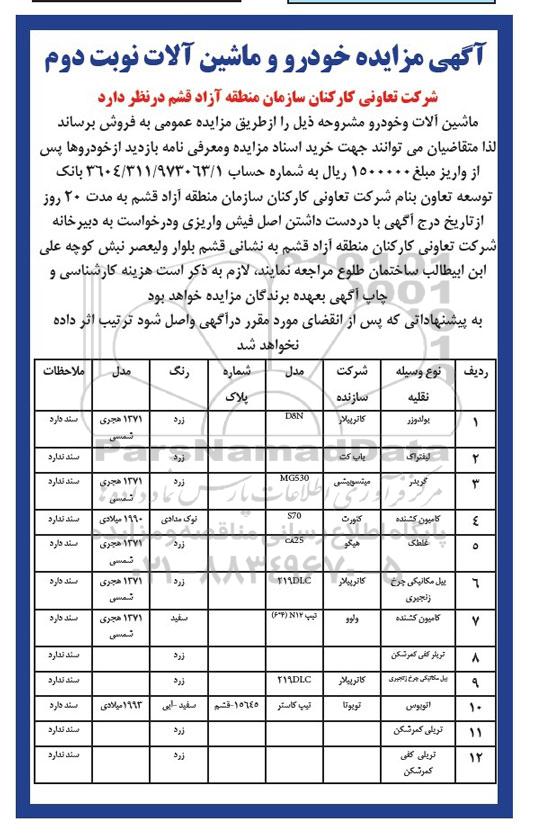 آگهی مزایده خودرو و ماشین آلات نوبت دوم
شرکت تعاونی کارکنان سازمان منطقه آزاد قشم درنظر دارد
ماشین آلات وخودرو مشروحه ذیل را ازطریق مزایده عمومی به فروش برساند
لذا متقاضیان می توانند جهت خرید اسناد مزایده ومعرفی نامه بازدید ازخودروها پس
از واریز مبلغ ۱۵۰۰۰۰۰ ریال به شماره حساب ۳۶۰۴/۳۱۱/۹۷۳۰۶۳/۱ بانک
توسعه تعاون بنام شرکت تعاونی کارکنان سازمان منطقه آزاد قشم به مدت ۲۰ روز
ازتاریخ درج آگهی با دردست داشتن اصل فیش واریزی ودرخواست به دبیرخانه
شرکت تعاونی کارکنان منطقه آزاد قشم به نشانی قشم بلوار ولیعصر نبش کوچه علی
ابن ابیطالب ساختمان طلوع مراجعه نمایند، لازم به ذکر است هزینه کارشناسی و
چاپ آگهی بعهده برندگان مزایده خواهد بود
به پیشنهاداتی که پس از انقضای مورد مقرر درآگهی واصل شود ترتیب اثر داده
نخواهد شد
ردیف نوع وسیله نقلیه شرکت سازنده مدل شماره پلاک رنگ مدل ملاحظات
۱ بولدوزر کاترپیلار D8N زرد ۱۳۷۱ هجری شمسی سند دارد
۲ لیفتراک یاپ کت زرد سند ندارد
۳ گریدر میتسوبیشی MG530 زرد ۱۳۷۱ هجری شمسی سند ندارد
۴ کامیون کشنده کنورت S70 نوک مدادی ۱۹۹۰ میلادی سند دارد
۵ غلطک هیگو CA25 زرد ۱۳۷۱ هجری شمسی سند دارد
۶ بیل مکانیکی چرخ زنجیری کاترپیلار ۲۱۹DLC زرد ۱۳۷۱ هجری شمسی سند دارد
۷ کامیون کشنده ولوو تیپ N۱۲ (۴*۶) سفید ۱۳۷۱ هجری شمسی سند دارد
۸ تریلر کفی کمرشکن زرد سند ندارد
۹ بیل مکانیکی چرخ زنجیری کاترپیلار ۲۱۹DLC زرد سند دارد
۱۰ اتوبوس تویوتا تیپ کاستر ۱۵۶۴۵-قشم سفید -آبی ۱۹۹۳میلادی سند دارد
۱۱ تریلی کمرشکن زرد سند ندارد
۱۲ تریلی کفی کمرشکن زرد سند ندارد
ParsNamadData
مرکز فرآوری اطلاعات پارس نماد داده ها
پایگاه اطلاع رسانی مناقصه و مزایده
۰۲۱-۸۸۳۴۹۶۷۰-۵